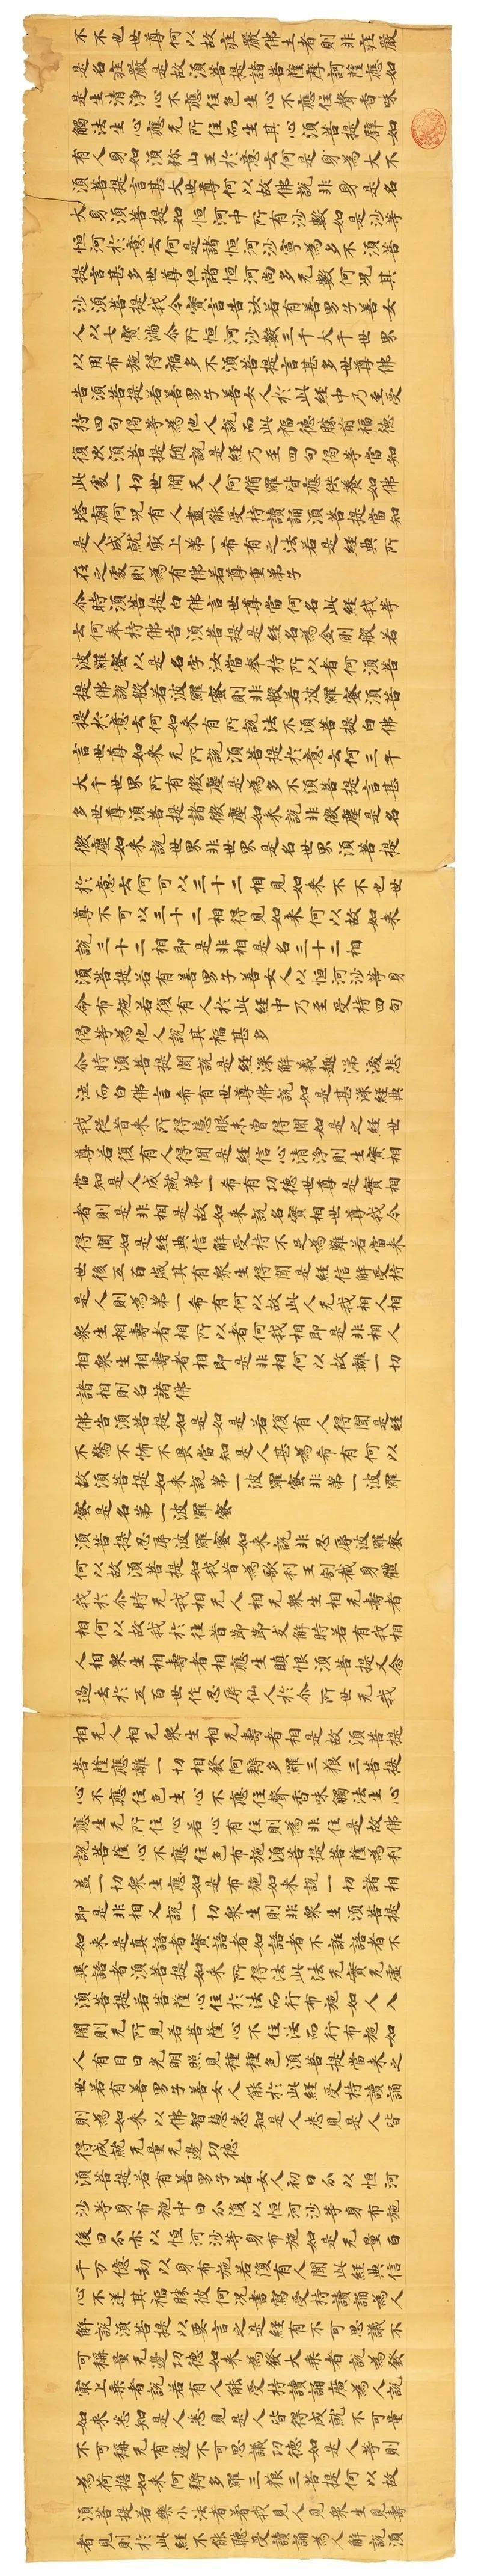 不不也世尊何以故莊嚴佛土者則非莊嚴
是名莊嚴是故須菩提諸菩薩摩訶薩應如
是生清淨心不應住色生心不應住聲香味
觸法生心應无所住而生其心須菩提譬如
有人身如須弥山王於意云何是身為大不
須菩提言甚大世尊何以故佛說非身是名
大身須菩提如恒河中所有沙數如是沙等
恒河於意云何是諸恒河沙寧為多不須菩
提言甚多世尊但諸恒河尚多无數何况其
沙須菩提我今實言告汝若有善男子善女
人以七寶滿尒所恒河沙數三千大千世界
以用布施得福多不須菩提言甚多世尊佛
告須菩提若善男子善女人於此經中乃至受
持四句偈等為他人說而此福德勝前福德
復次須菩提随說是經乃至四句偈等當知
此處一切世間天人阿脩羅皆應供養如佛
塔廟何况有人盡能受持讀誦須菩提當知
是人成就寂上第一希有之法若是經典所
在之處則為有佛若尊重弟子
尒時須菩提白佛言世尊當何名此經我等
云何奉持佛告須菩提是經名為金剛般若
波羅蜜以是名字汝當奉持所以者何須菩
提佛說般若波羅蜜則非般若波羅蜜須菩
提於意云何如来有所說法不須菩提白佛
言世尊如来无所說須菩提於意云何三千
大千世界所有微塵是為多不須菩提言甚
多世尊須菩提諸微塵如来說非微塵是名
微塵如来說世界非世界是名世界須菩提
於意云何可以三十二相見如来不不也世
尊不可以三十二相得見如来何以故如来
說三十二相即是非相是名三十二相
須菩提若有善男子善女人以恒河沙等身
命布施若復有人於此經中乃至受持四句
偈等為他人說其福甚多
尒時須菩提聞說是經深解義趣涕淚悲
泣而白佛言希有世尊佛說如是甚深經典
我從昔来所得慧眼未曽得聞如是之經世
尊若復有人得聞是經信心清淨則生實相
當知是人成就第一希有功德世尊是實相
者則是非相是故如来說名實相世尊我今
得聞如是經典信解受持不足為難若當来
世後五百歲其有衆生得聞是經信解受持
是人則為第一希有何以故此人无我相人相
衆生相壽者相所以者何我相即是非相人
相衆生相壽者相即是非相何以故離一切
諸相則名諸佛
佛告須菩提如是如是若復有人得聞是經
不驚不怖不畏當知是人甚為希有何以
故須菩提如来說第一波羅蜜非第一波羅
蜜是名第一波羅蜜
須菩提忍辱波羅蜜如来說非忍辱波羅蜜
何以故須菩提如我昔為歌利王割截身體
我於尒時无我相无人相无衆生相无壽者
相何以故我於往昔節節支解時若有我相
人相衆生相壽者相應生瞋恨須菩提又念
過去於五百世作忍辱仙人於尒所世无我
相无人相无衆生相无壽者相是故須菩提
菩薩應離一切相發阿耨多羅三藐三菩提
心不應住色生心不應住聲香味觸法生心
應生无所住心若心有住則為非住是故佛
說菩薩心不應住色布施須菩提菩薩為利
益一切衆生應如是布施如来說一切諸相
即是非相又說一切衆生則非衆生須菩提
如来是真語者實語者如語者不誑語者不
異語者須菩提如来所得法此法无實无虛
須菩提若菩薩心住於法而行布施如人入
闇則无所見若菩薩心不住法而行布施如
人有目日光明照見種種色須菩提當来之
世若有善男子善女人能於此經受持讀誦
則為如来以佛智慧悉知是人悉見是人皆
得成就无量无邊功德
須菩提若有善男子善女人初日分以恒河
沙等身布施中日分復以恒河沙等身布施
後日分亦以恒河沙等身布施如是无量百
千万億劫以身布施若復有人聞此經典信
心不逆其福勝彼何况書寫受持讀誦為人
解說須菩提以要言之是經有不可思議不
可稱量无邊功德如来為發大乘者說為發
寂上乘者說若有人能受持讀誦廣為人說
如来悉知是人悉見是人皆得成就不可量
不可稱无有邊不可思議功德如是人等則
為荷擔如来阿耨多羅三藐三菩提何以故
須菩提若樂小法者著我見人見衆生見壽
者見則於此經不能聽受讀誦為人解說須